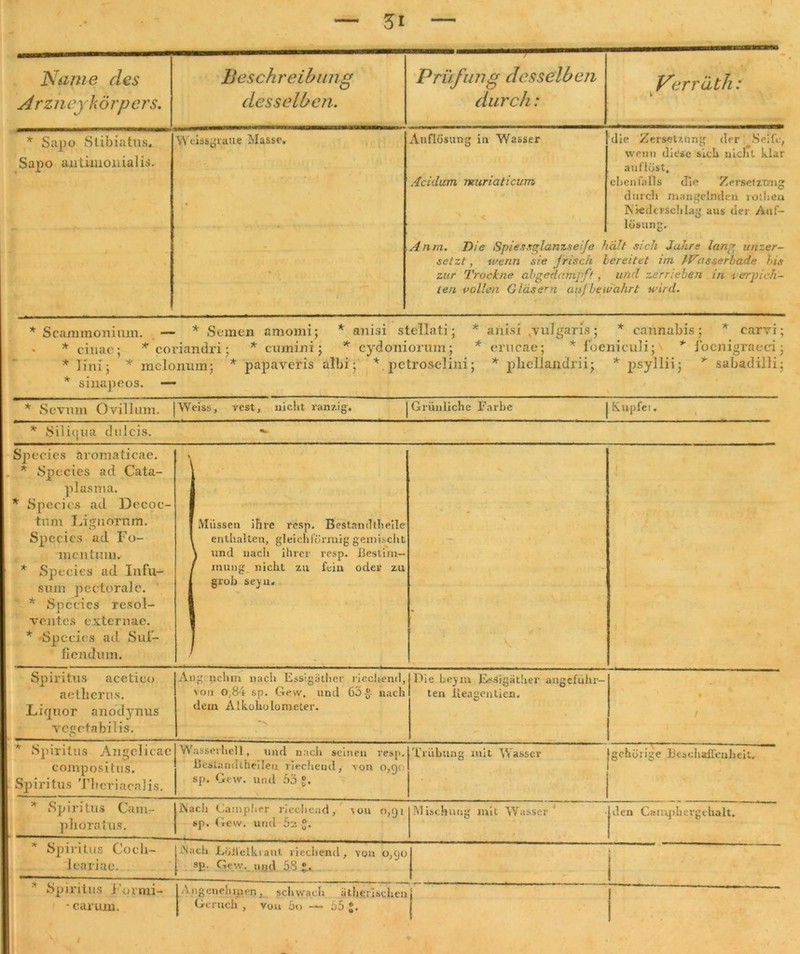 — 31 —
Name des Arzneykörpers.
Beschreibung desselben.
Prüfung desselben durch:
Verräth:
* Sapo Stibiatus.
Sapo antimonialis.
Weissgraue Masse.
Auflösung in Wasser
Acidum muriaticum
die Zersetzung der Seife,
wenn diese sich nicht klar
auflöst,
ebenfalls die Zersetzung
durch mangelnden rothen
Niederschlag aus der Auf-
lösung.
Anm. Die Spiessglanzseife hält sich Jahre lang unzer-
setzt, wenn sie frisch bereitet im Wasserbade bis
zur Trockne abgedampft, und zerrieben in verpich-
ten vollen Gläsern aufbewahrt wird.
* Scammonium. — * Semen amomi; * anisi stellati; * anisi vulgaris; * cannabis; * carvi;
* cinae; * coriandri; * cumini; * cydoniorum; * erucae; * foeniculi; * foenigraeci;
* lini; * melonum; * papaveris albi; * petroselini; * phellandrii; * psyllii; * sabadilli;
* sinapeos. —
* Sevum Ovillum.
Weiss, vest, nicht ranzig.
Grünliche Farbe
Kupfer.
* Siliqua dulcis.
Species aromaticae.
* Species ad Cata-
plasma.
* Species ad Decoc-
tum Lignorum.
Species ad Fo-
mentum.
* Species ad Infu-
sum pectorale.
* Species resol-
ventes externae.
* Species ad Suf-
fiendum.
Müssen ihre resp. Bestandtheile
enthalten, gleichförmig gemischt
und nach ihrer resp. Bestim-
mung nicht zu fein oder zu
grob seyn.
Spiritus acetico
aethereus.
Liquor anodynus
vegetabilis.
Angenehm nach Essigäther riechend,
von 0,84 sp. Gew. und 65 g nach
dem Alkoholometer.
Die beym Essigäther angeführ-
ten Reagentien.
* Spiritus Angelicae
compositus.
Spiritus Theriacalis.
Wasserhell, und nach seinen resp.
Bestandtheilen riechend, von 0,90
sp. Gew. und 53 g.
Trübung mit Wasser
gehörige Beschaffenheit.
* Spiritus Cam-
phoratus.
Nach Campher riechend, von 0,91
sp. Gew. und 52 g.
Mischung mit Wasser
den Camphergehalt.
* Spiritus Coch-
leariae.
Nach Löffelkraut riechend, von 0,90
sp. Gew. und 58 g.
* Spiritus Formi-
carum.
Angenehmen, schwach ätherischen
Geruch, von 50 — 55 g.